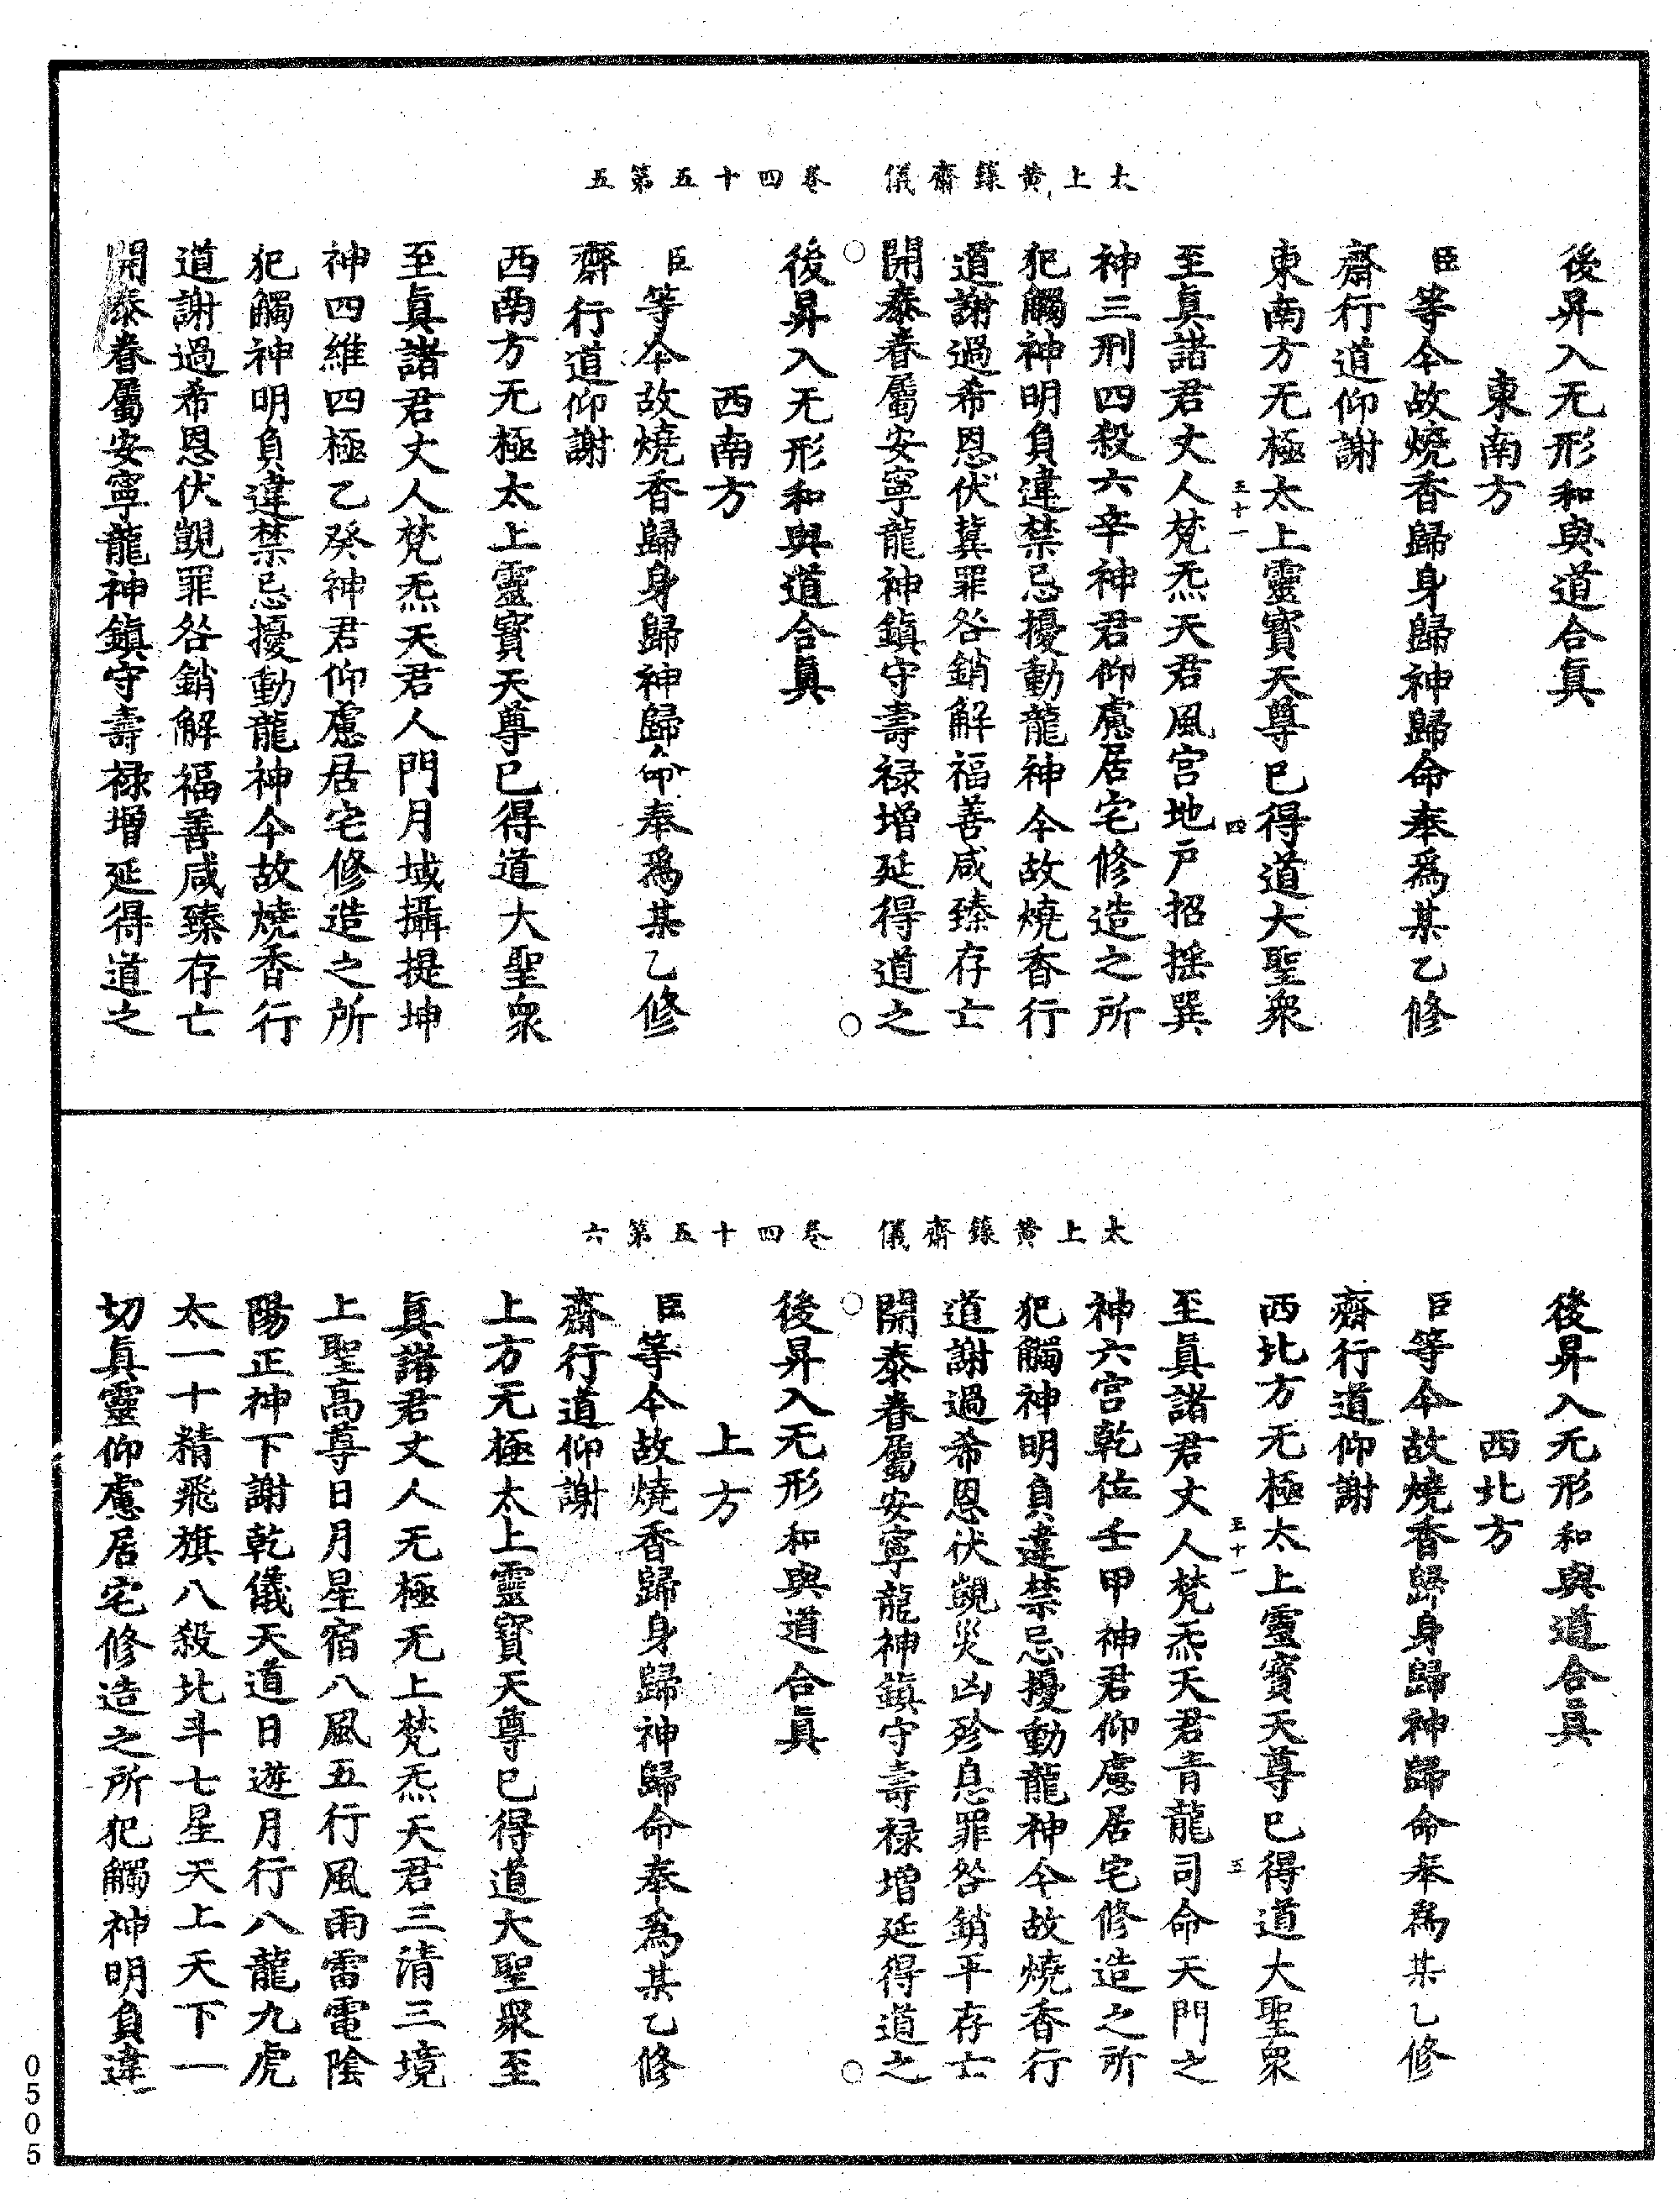 太上黃籙齋儀　卷四十五第五
後昇入无形和與道合眞
東南方
臣等今故燒香歸身歸神歸命奉爲某乙修
齋行道仰謝
東南方无極太上靈寶天尊已得道大聖衆
至眞諸君丈人梵炁天君風宮地戶招搖巽
神三刑四殺六辛神君仰慮居宅修造之所
犯觸神明負違禁忌擾動龍神今故燒香行
道謝過希恩伏冀罪咎銷解福善咸臻存亡
開泰眷屬安寧龍神鎮守壽祿增延得道之
後昇入无形和與道合眞
西南方
臣等今故燒香歸身歸神歸命奉爲某乙修
齋行道仰謝
西南方无極太上靈寶天尊已得道大聖衆
至眞諸君丈人梵炁天君人門月域攝提坤
神四維四極乙癸神君仰慮居宅修造之所
犯觸神明負違禁忌擾動龍神今故燒香行
道謝過希恩伏覬罪咎銷解福善咸臻存亡
開泰眷屬安寧龍神鎮守壽祿增延得道之
太上黃籙齋儀　卷四十五第六
後昇入无形和與道合眞
西北方
臣等今故燒香歸身歸神歸命奉爲某乙修
齋行道仰謝
西北方无極太上靈寶天尊已得道大聖衆
至眞諸君丈人梵炁天君青龍司命天門之
神六宮乾位壬甲神君仰慮居宅修造之所
犯觸神明負違禁忌擾動龍神今故燒香行
道謝過希恩伏覬災凶殄息罪咎銷平存亡
開泰眷屬安寧龍神鎮守壽祿增延得道之
後昇入无形和與道合眞
上方
臣等今故燒香歸身歸神歸命奉爲某乙修
齋行道仰謝
上方无極太上靈寶天尊已得道大聖衆至
眞諸君丈人无極无上梵炁天君三清三境
上聖高尊日月星宿八風五行風雨雷電陰
陽正神下謝乾儀天道日遊月行八龍九虎
太一十精飛旗八殺北斗七星天上天下一
切眞靈仰慮居宅修造之所犯觸神明負違
0505